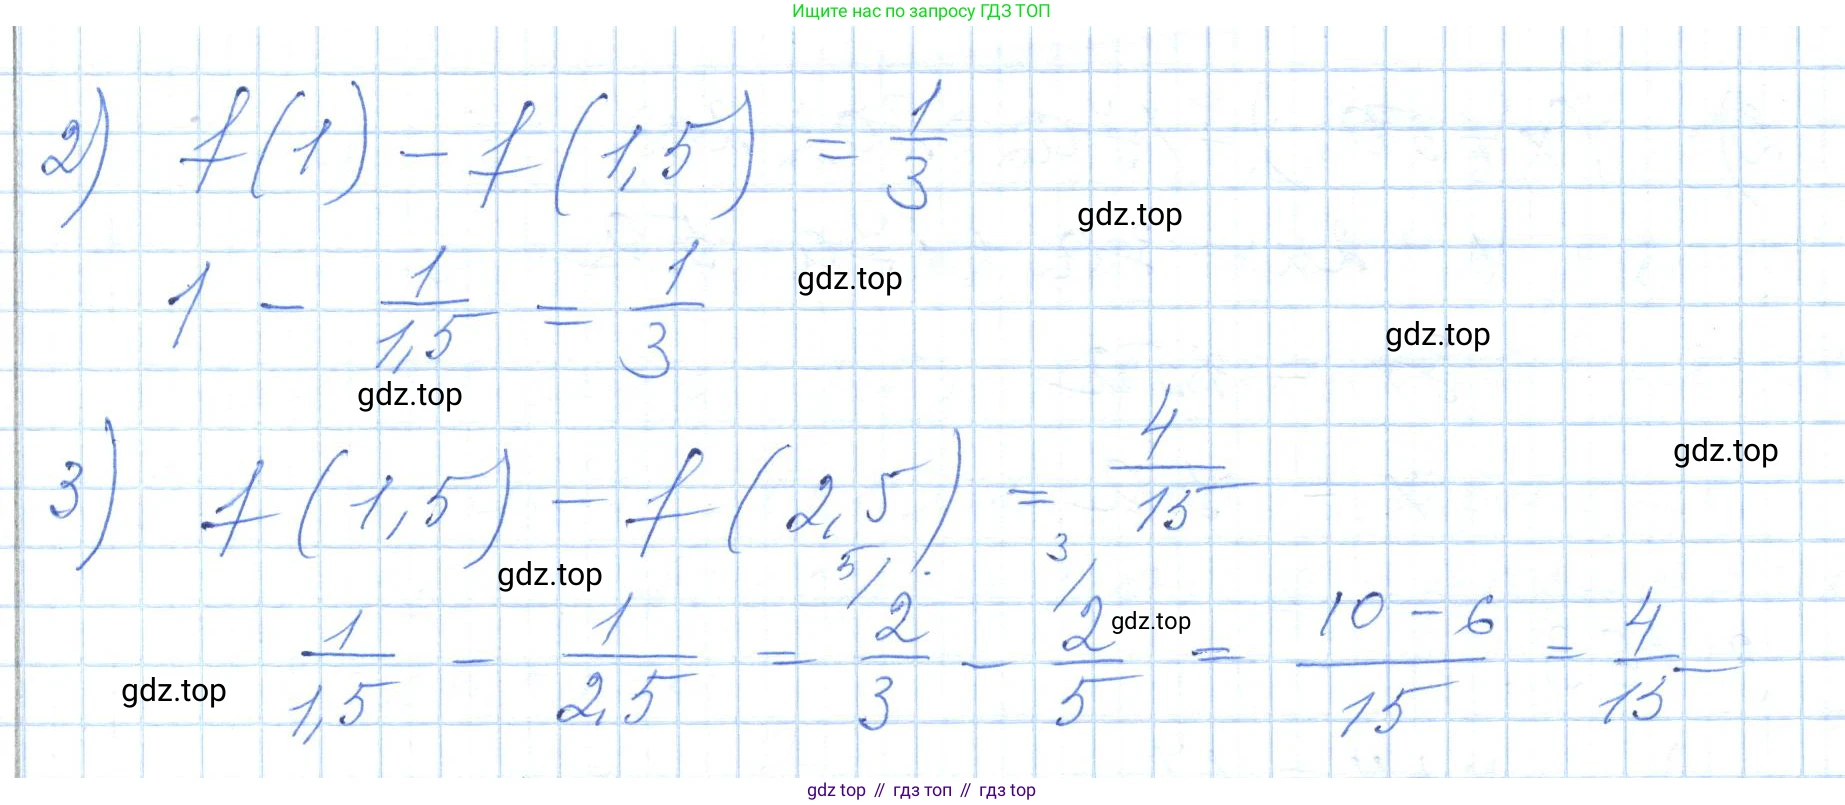 Ищите нас по запросу ГДЗ ТОП
2) f(1) - f(1,5) = 1/3
gdz.top
1 - 1/1,5 = 1/3
gdz.top
gdz.top
gdz.top
3) f(1,5) - f(2,5) = 4/15
gdz.top
gdz.top
1/1,5 - 1/2,5 = 5/ 2/3 - 3/ 2/5 = 10 - 6/15 = 4/15
gdz.top
gdz.top
gdz top // гдз топ // гдз top